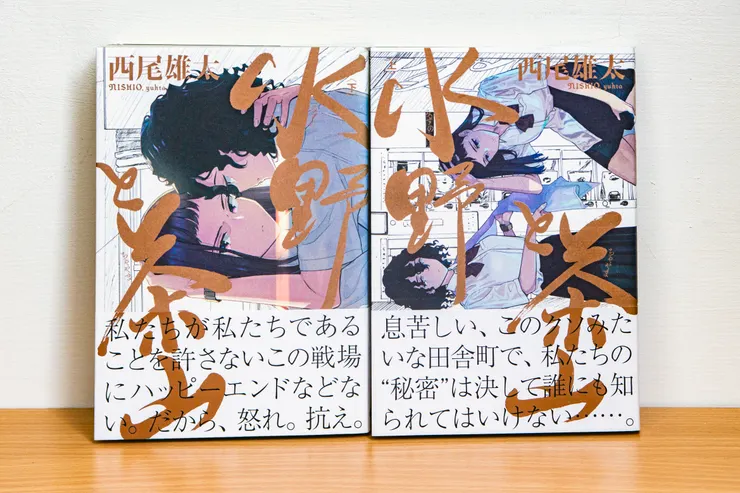 西尾雄太
NISHIO, yuhta
水野
と
茶山
(下)
私たちが私たちである
ことを許さないこの戦場
にハッピーエンドなどな
い。だから、怒れ。抗え。
西尾雄太
NISHIO, yuhta
水野
と
茶山
上
息苦しい、このクソみた
いな田舎町で、私たちの
“秘密”は決して誰にも知
られてはいけない……。